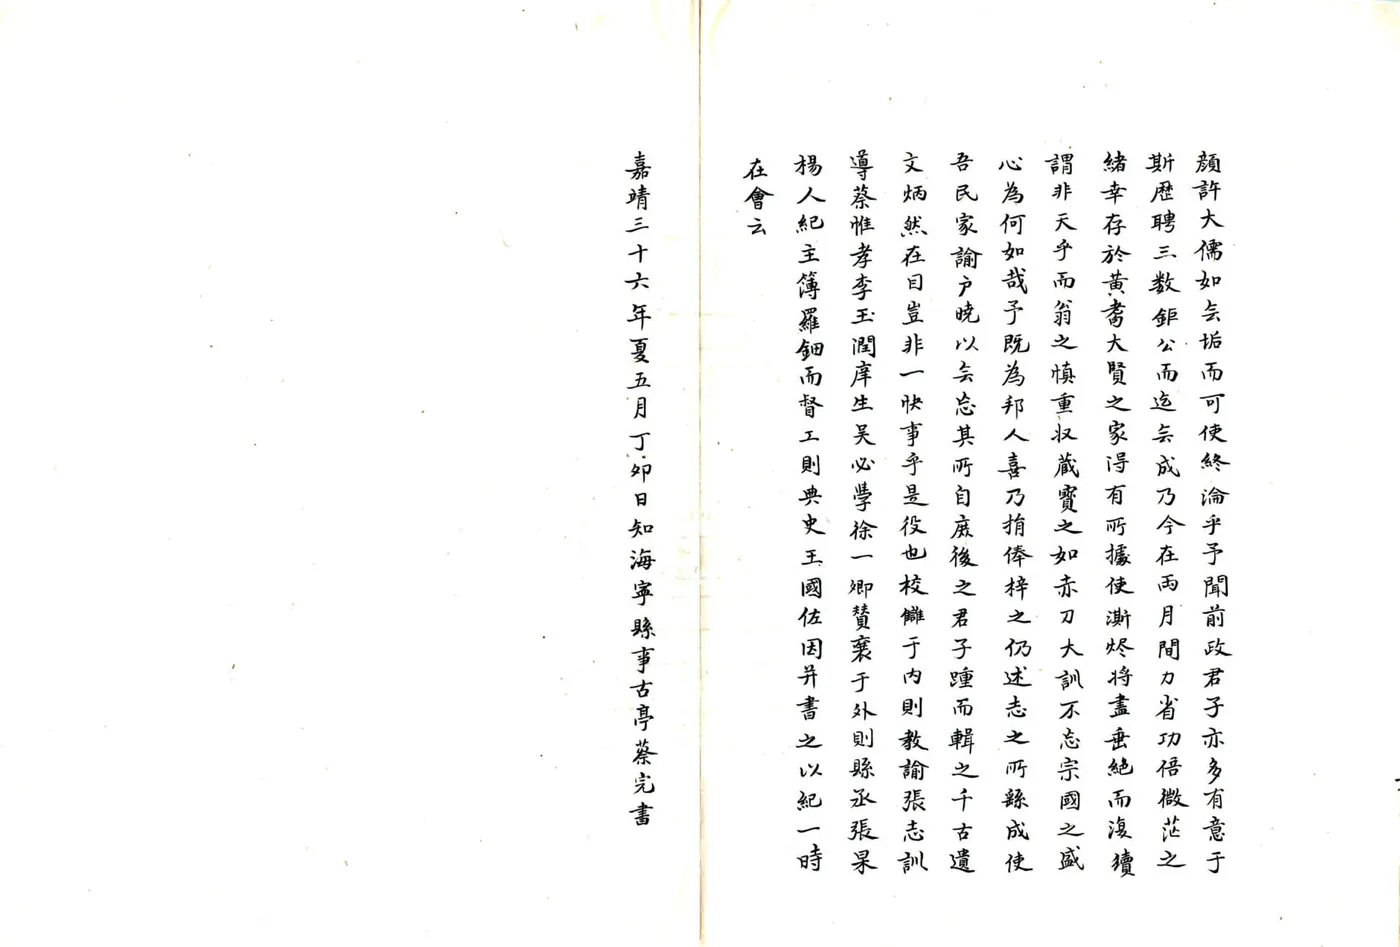 顔許大儒如㑹垢而可使終淪乎予聞前政君子亦多有意于
斯歷聘三數鉅公而迄無成乃今在兩月間力省功倍微茫之
緒幸存於黃耇大賢之家得有所據使澌燼將盡垂絕而復續
謂非天乎而翁之慎重収蔵寳之如赤刀大訓不忘宗國之盛
心為何如哉予既為邦人喜乃捐俸梓之仍述志之所繇成使
吾民家諭户曉以無忘其所自庻後之君子踵而輯之千古遺
文炳然在目豈非一快事乎是役也校讎于内則教諭張志訓
導蔡惟孝李玉潤庠生吴必學徐一卿賛襄于外則縣丞張杲
楊人紀主簿羅鈿而督工則典史王國佐因并書之以紀一時
在會云
嘉靖三十六年夏五月丁夘日知海寧縣事古亭蔡完書